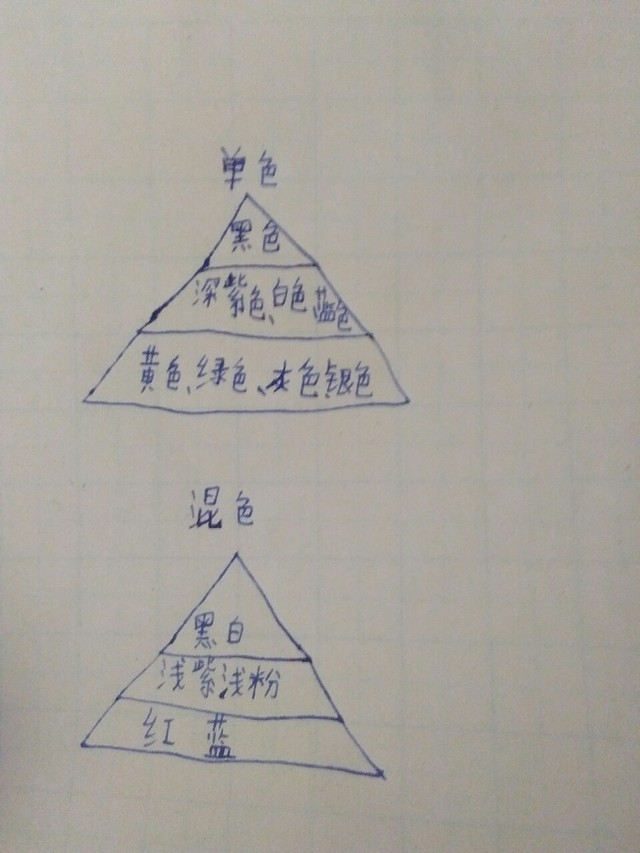 单色
黑色
深紫色、白色、蓝色
黄色、绿色、灰色、银色
混色
黑白
浅紫浅粉
红 蓝